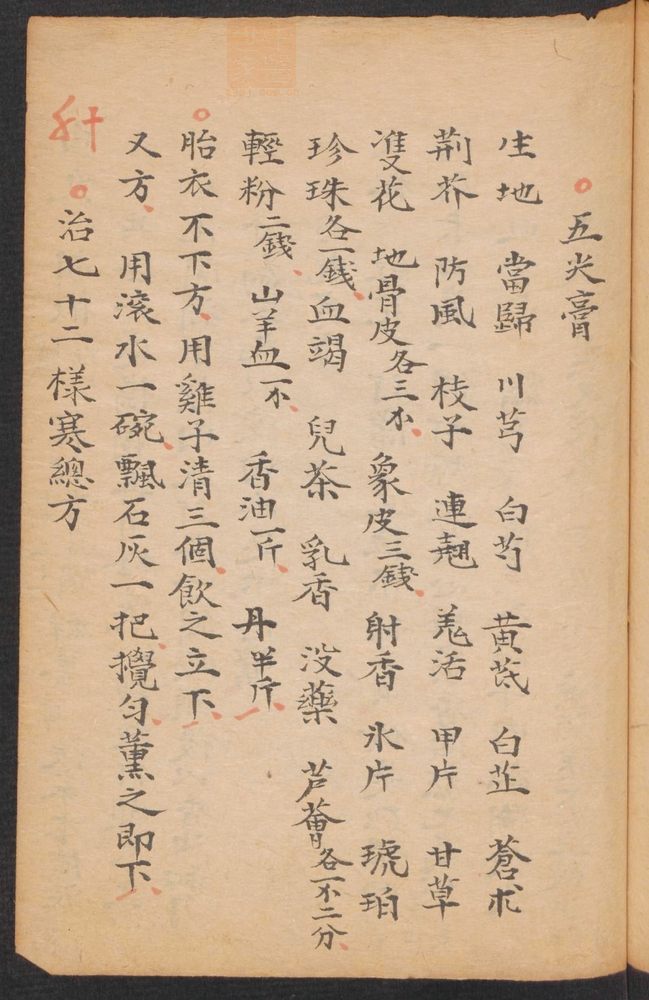 五尖膏
生地 當歸 川芎 白芍 黄芪 白芷 蒼朮
荆芥 防風 枝子 連翹 羗活 甲片 甘草
隻花 地骨皮各三不 象皮三錢 射香 氷片 琥珀
珍珠各一錢 血竭 兒茶 乳香 没藥 芦薈各一不二分
輕粉二錢 山羊血一不 香油一斤 丹半斤
胎衣不下方 用雞子清三個飲之立下
又方 用滚水一碗 飄石灰一把 攪匀薰之即下
治七十二樣寒總方